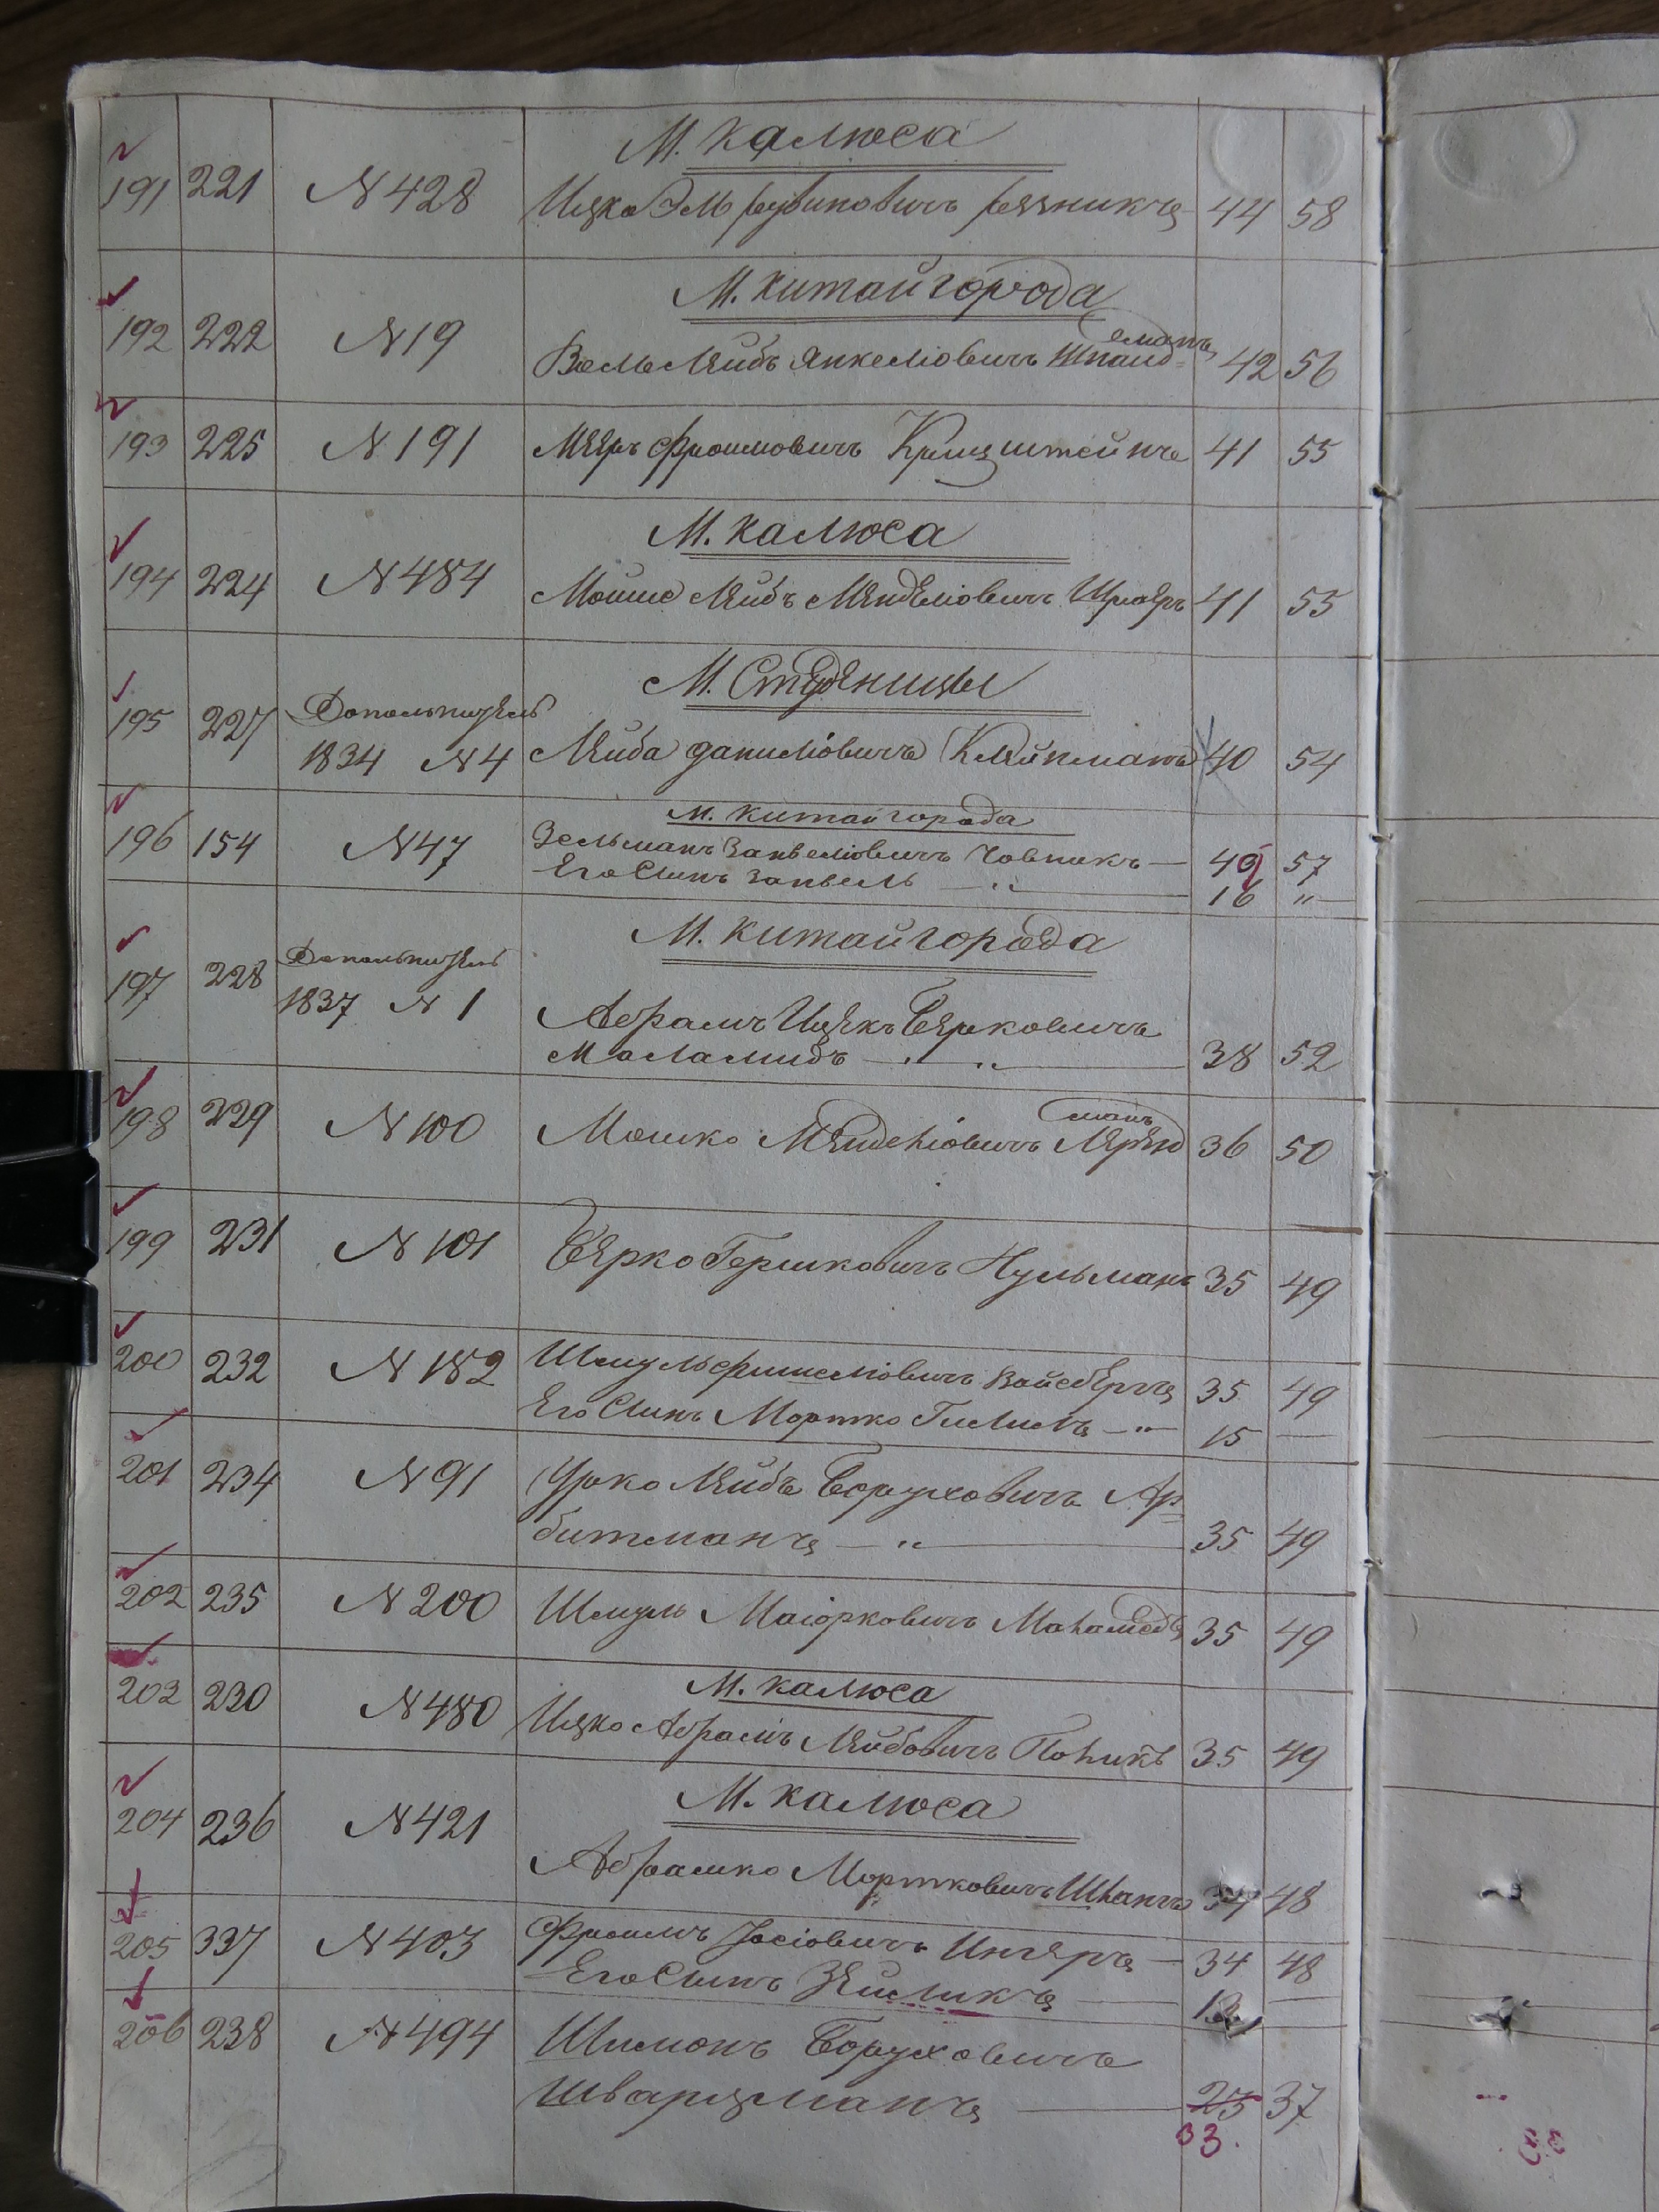 М. Калюса
191 221 N 428 Ицко Эль Рувиновичъ Резникъ 44 58
М. Китайгорода
192 222 N 19 Вольлейбъ Янкеліовичъ Шпайд= 42 56
193 225 N 191 Мееръ Фроимовичъ 41 55
М. Калюса
194 224 N 484 Мошко Лейбъ Менделіовичъ 41 55
М. Студеницы
195 227 Дополнител
1834 N 4 Лейба Даниліовичъ Клейнманъ 40 54
М. Китайгорода
196 154 N 47 Зельманъ Занвеліовичъ Човникъ — 49 57
Его Сынъ Занвель — " 16 "
М. Китайгорода
197 228 Дополнител
1837 N 1 Абрамъ Ицекъ Берковичъ
Маламидъ — " " 38 52
манъ
198 229 N 100 Мошко Менделіовичъ Лерн 36 50
199 231 N 101 Берко Гершковичъ Нульманъ 35 49
200 232 N 182 Шмуль Фишеліовичъ Вайсбергъ 35 49
Его Сынъ Мортко — " 15 —
201 234 N 91 Урко Лейбъ Боруховичъ Ар=
битманъ — " 35 49
202 235 N 200 Шмуль Маіорковичъ Маламедъ 35 49
М. Калюса
203 230 N 480 Ицко Абрамъ Лейбовичъ 35 49
М. Калюса
204 236 N 421
Абрамко Мортковичъ 34 48
205 337 N 403 Фроимъ Іосіовичъ Ингеръ — 34 48
Его Сынъ Зейликъ — 12 —
206 238 N 494 Шимонъ Боруховичъ
Шварцманъ — 23 37
33.